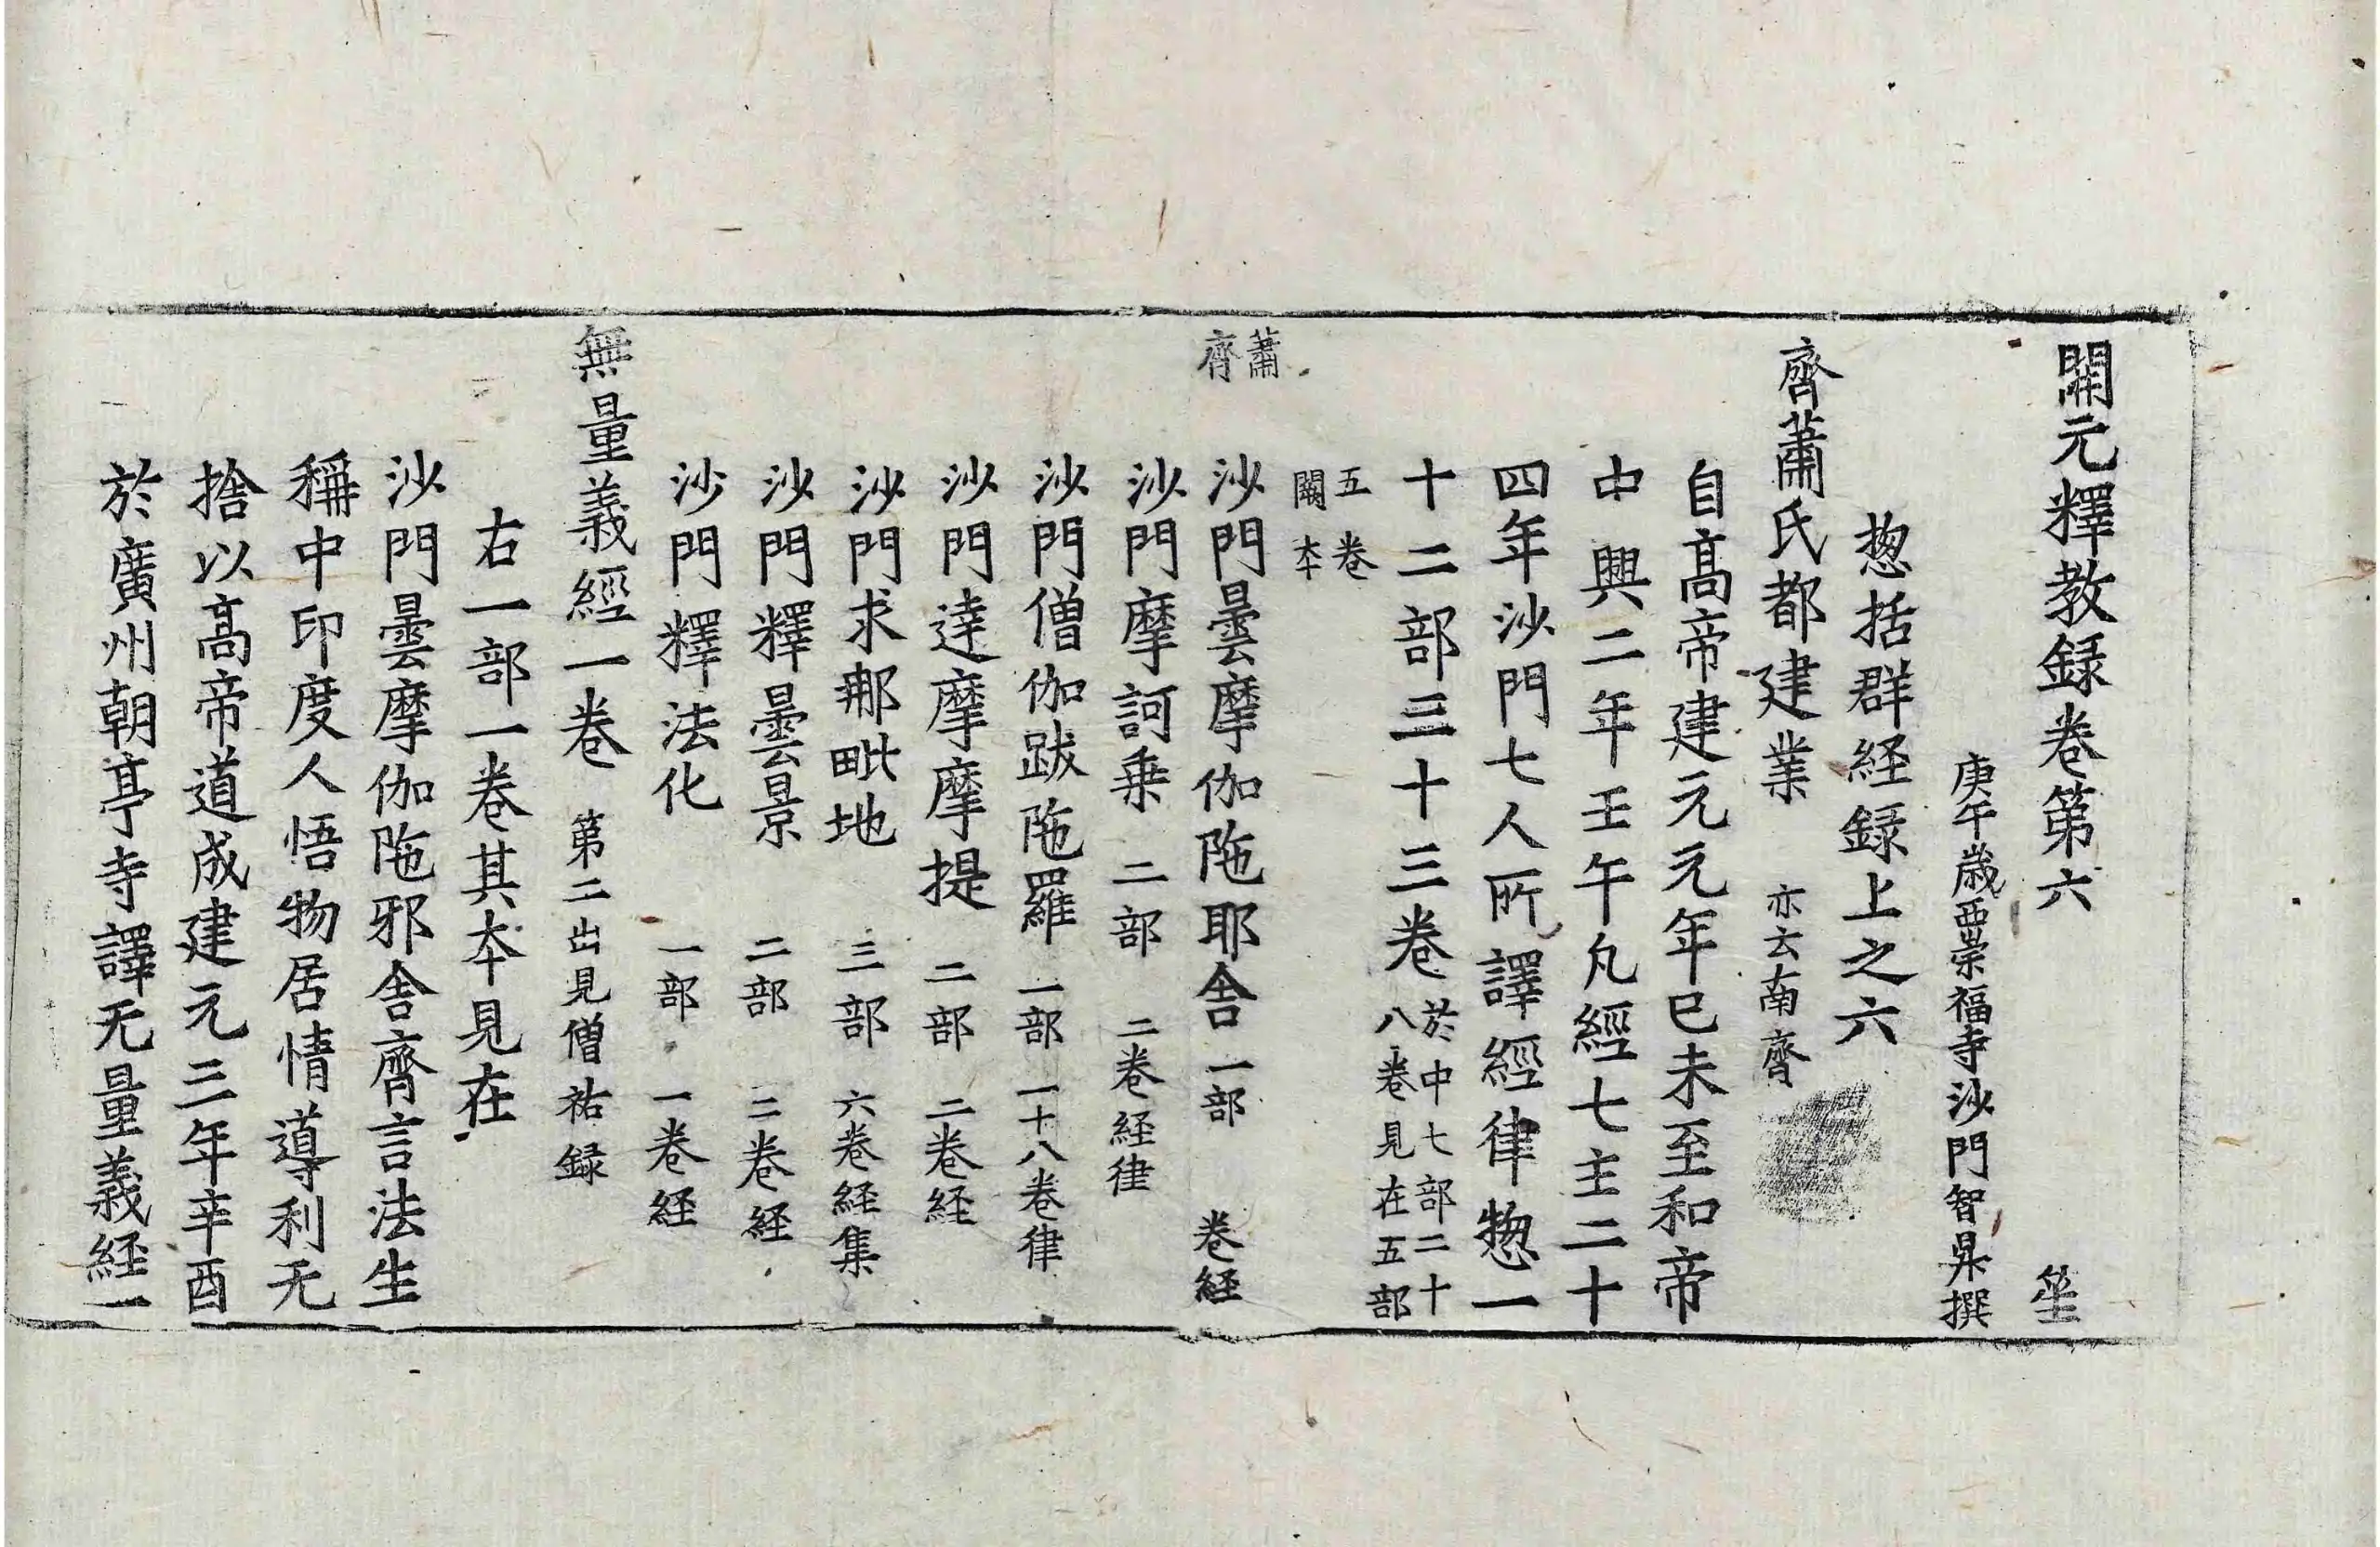 開元釋教録卷第六 笙
庚午歳西崇福寺沙門智昇撰
揔括群経録上之六
齊蕭氏都建業 亦云南齊
自髙帝建元元年巳未至和帝
中興二年壬午凡經七主二十
四年沙門七人所譯經律惣一
十二部三十三卷 於中七部二十
八卷見在五部
五卷
闕本
蕭
齊
沙門曇摩伽陁耶舎 一部 卷経
沙門摩訶乗 二部 二卷経律
沙門僧伽跋陁羅 一部 一十八卷律
沙門達摩摩提 二部 二卷経
沙門求那毗地 三部 六卷経集
沙門釋曇景 二部 二卷経
沙門釋法化 一部 一卷経
無量義經一卷 第二出見僧祐録
右一部一卷其夲見在
沙門曇摩伽陁邪舎齊言法生
稱中印度人悟物居情導利无
捨以髙帝道成建元三年辛酉
於廣州朝亭寺譯无量義経一